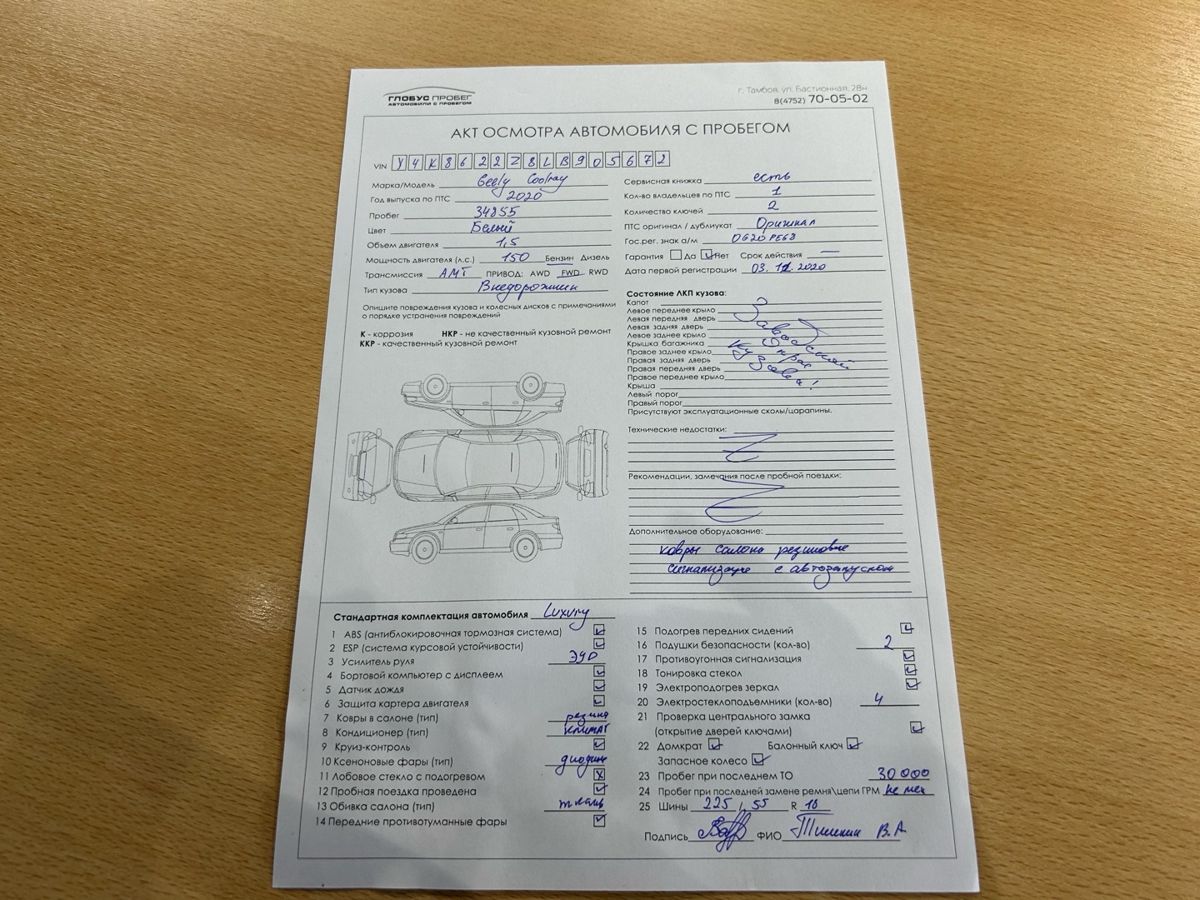 ГЛОБУС ПРОБЕГ
АВТОМОБИЛИ С ПРОБЕГОМ
г. Тамбов, ул. Бастионная, 28н
8(4752) 70-05-02
АКТ ОСМОТРА АВТОМОБИЛЯ С ПРОБЕГОМ
VIN Y4K8622Z8LB905672
Марка/Модель Geely Coolray
Год выпуска по ПТС 2020
Пробег 34855
Цвет Белый
Объем двигателя 1,5
Мощность двигателя (л.с.) 150 Бензин Дизель
Трансмиссия АМТ ПРИВОД: AWD FWD RWD
Тип кузова Внедорожник
Опишите повреждения кузова и колесных дисков с примечаниями
о порядке устранения повреждений
К - коррозия НКР - не качественный кузовной ремонт
ККР - качественный кузовной ремонт
Сервисная книжка есть
Кол-во владельцев по ПТС 1
Количество ключей 2
ПТС оригинал / дубликат Оригинал
Гос.рег. знак а/м О620РЕ68
Гарантия Да Нет Срок действия —
Дата первой регистрации 03.12.2020
Состояние ЛКП кузова:
Капот
Левое переднее крыло
Левая передняя дверь
Левая задняя дверь
Левое заднее крыло
Крышка багажника
Правое заднее крыло
Правая задняя дверь
Правая передняя дверь
Правое переднее крыло
Крыша
Левый порог
Правый порог
Заводской
окрас
кузова!
Присутствуют эксплуатационные сколы/царапины.
Технические недостатки:
Рекомендации, замечания после пробной поездки:
Дополнительное оборудование:
ковры салона резиновые
сигнализация с автозапуском
Стандартная комплектация автомобиля Luxury
1 ABS (антиблокировочная тормозная система)
2 ESP (система курсовой устойчивости)
3 Усилитель руля ЭУР
4 Бортовой компьютер с дисплеем
5 Датчик дождя
6 Защита картера двигателя
7 Ковры в салоне (тип) резина
8 Кондиционер (тип) климат
9 Круиз-контроль
10 Ксеноновые фары (тип) диодные
11 Лобовое стекло с подогревом
12 Пробная поездка проведена
13 Обивка салона (тип) ткань
14 Передние противотуманные фары
15 Подогрев передних сидений
16 Подушки безопасности (кол-во) 2
17 Противоугонная сигнализация
18 Тонировка стекол
19 Электроподогрев зеркал
20 Электростеклоподъемники (кол-во) 4
21 Проверка центрального замка
(открытие дверей ключами)
22 Домкрат Балонный ключ
Запасное колесо
23 Пробег при последнем ТО 30000
24 Пробег при последней замене ремня\цепи ГРМ не мен
25 Шины 225 / 55 R 18
Подпись ФИО В.А.